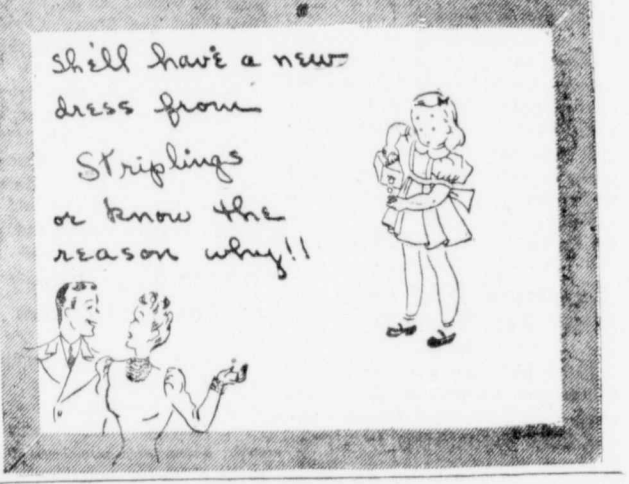 she'll have a new
dress from
Striplings
or know the
reason why!!